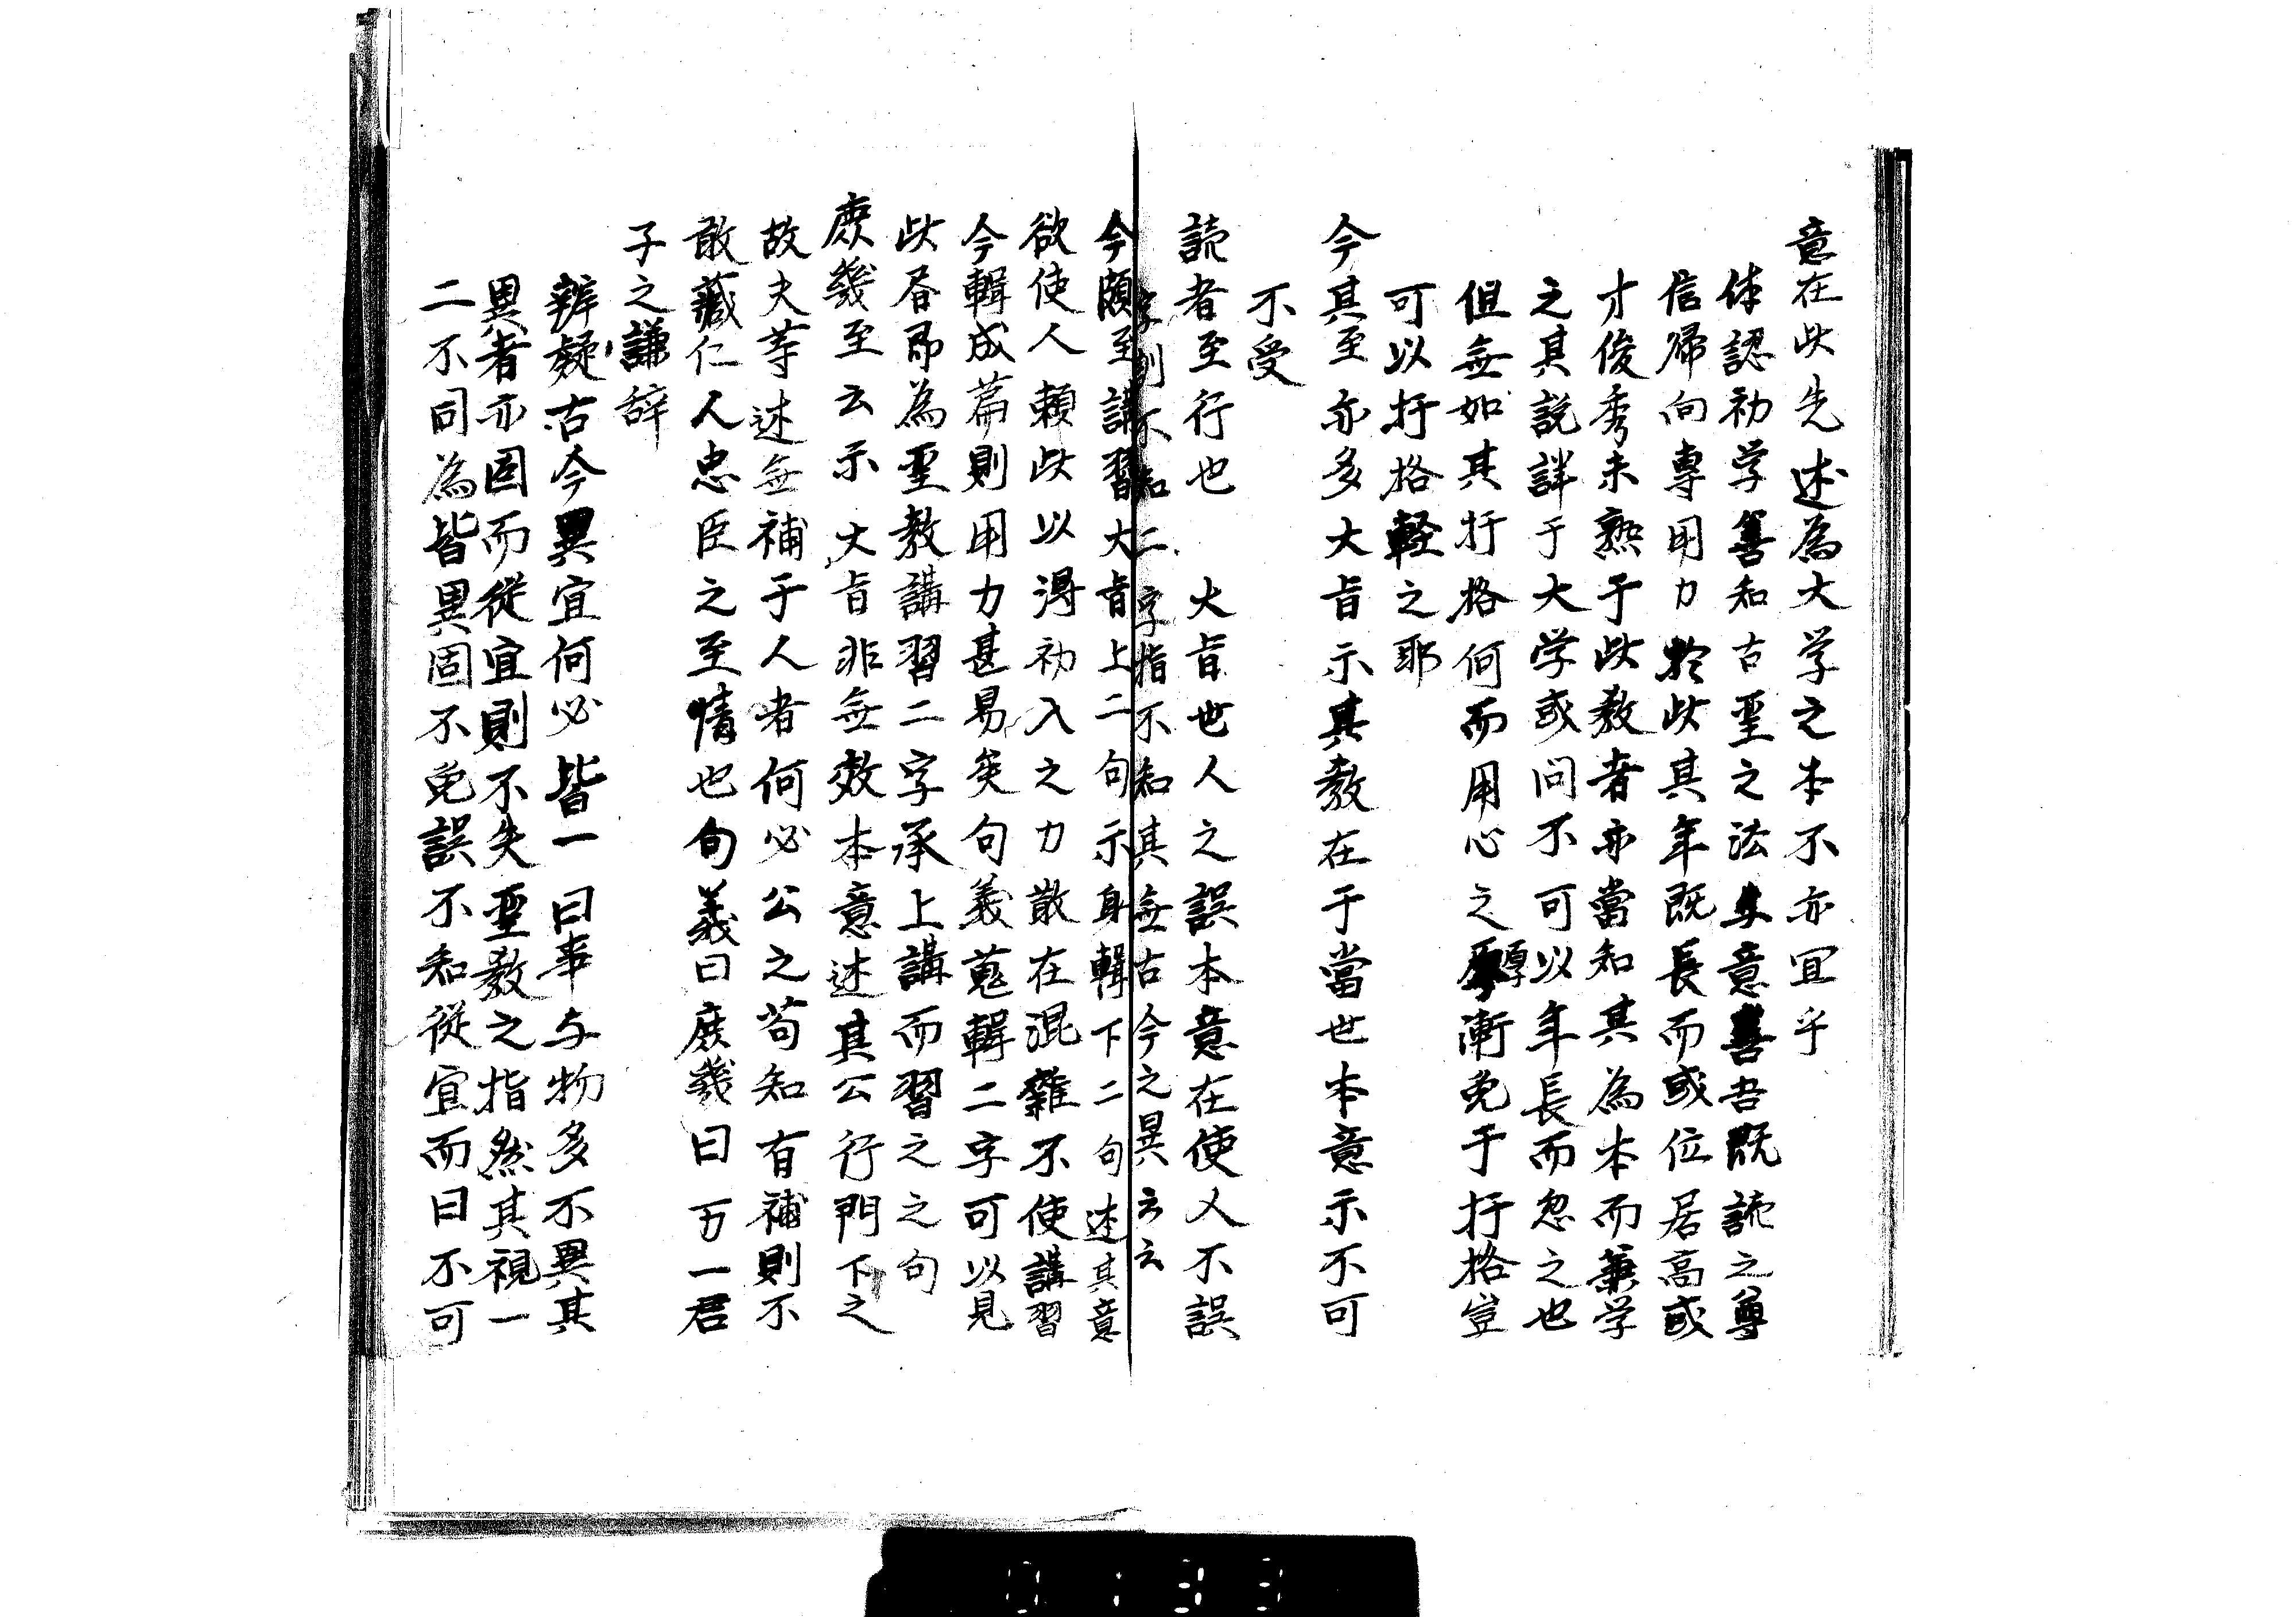 意在此先述為大学之本不亦宜乎
体認初学善知古聖之法与意善吾既読之尊
信帰向専用力於此其年既長而或位居高或
才俊秀未熟于此教者亦當知其為本而兼学
之其説詳于大学或問不可以年長而忽之也
但無如其扞格何而用心之厚漸免于扞格豈
可以扞格軽之耶
今其至亦多大旨示其教在于當世本意示不可
不受
読者至行也 大旨世人之誤本意在使人不誤
字則不知二字指不知其無古今之異云云
今頗至講習大旨上二句示身輯下二句述其意
欲使人頼此以得初入之力散在混雑不使講習
今輯成篇則用力甚易矣句義蒐輯二字可以見
此香即為聖教講習二字承上講而習之之句
庶幾至云示 大旨非無效本意述其公行門下之
故夫等述無補于人者何必公之苟知有補則不
敢蔵仁人忠臣之至情也句義曰庶幾曰万一君
子之謙辞
辨疑古今異宜何必皆一曰事与物多不異其
異者亦因而從宜則不失聖教之指然其視一
二不同為皆異固不免誤不知從宜而曰不可
0133